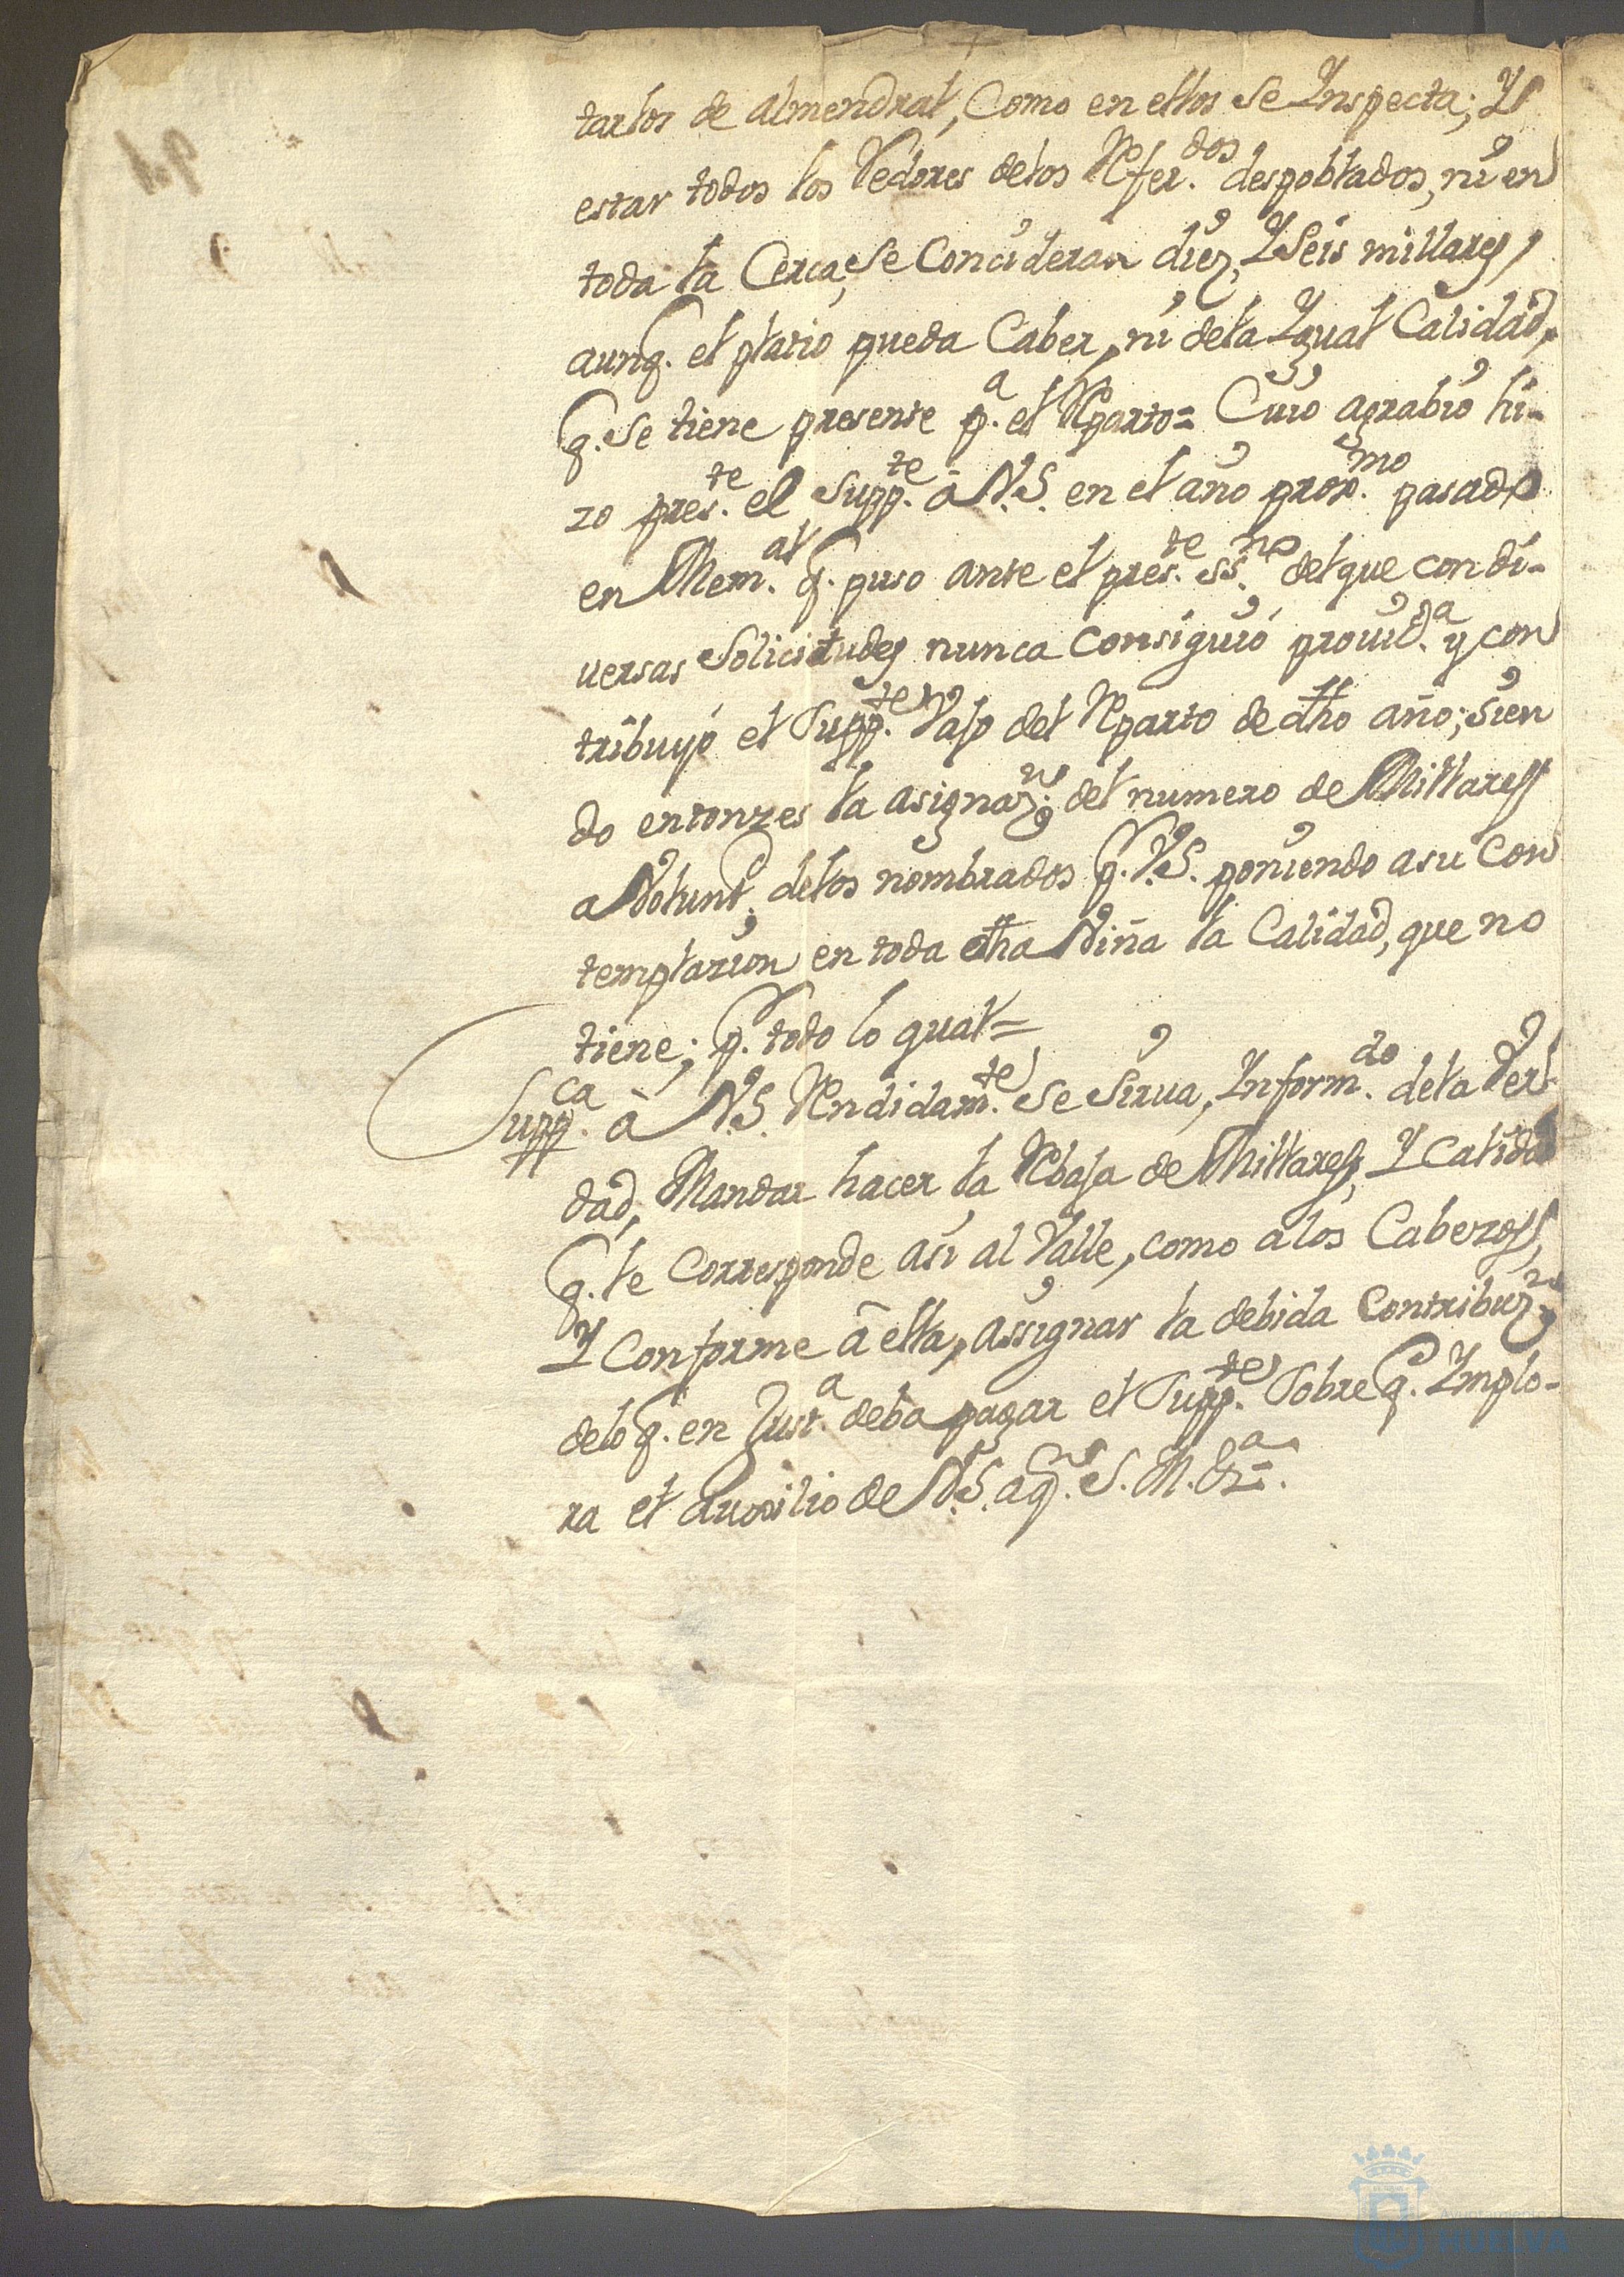 tarlos de almendral, Como en ellos se Ynspecta; Y
estar todos los Vedores delos Refer.dos despoblados, ni en
toda la Cerca, se Concideran diez, Y Seis millares,
aunq. el platio pueda Caber, ni dela Ygual Calidad,
q. se tiene presente p.a el Reparto= Cuio agrabio hi-
zo pres.te el Supp.te â V.S. en el año prox.mo pasado
en Mem.al q. puso ante el pres.te ss.no del que con di-
uersas Solicitudes nunca Consiguió prouid.a y con
tribuyó el Supp.te Vajo del Reparto de dho año; sien
do entonzes la asignaz.n del numero de Millares
a Volunt.d delos nombrados p. V.S. poniendo a su Con
templazion en toda dha Viña la Calidad, que no
tiene; p. todo lo qual=
Supp.ca â V.S. Rendidam.te se Sirua, Inform.do dela Ver-
dad, Mandar hacer la Rebaja de Millares, Y Calidad
q. le Corresponde asi al Valle, como a los Cabezos,
Y Conforme â ella, assignar la debida Contribuz.n
delo q. en Just.a deba pagar el Supp.te Sobre q. Ymplo-
ra el auxilio de V.S. a q.n S. M. Gra=.
Ayuntamiento de
HUELVA